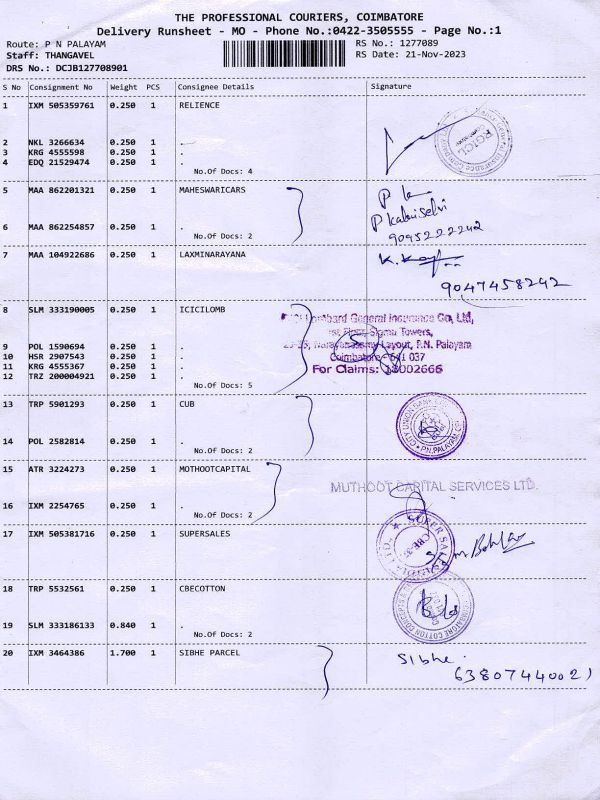 THE PROFESSIONAL COURIERS, COIMBATORE
Delivery Runsheet - MO - Phone No.:0422-3505555 - Page No.:1
Route: P N PALAYAM RS No.: 1277089
Staff: THANGAVEL RS Date: 21-Nov-2023
DRS No.: DCJB127708901
S No Consignment No Weight PCS Consignee Details Signature
1 IXM 505359761 0.250 1 RELIENCE
2 NKL 3266634 0.250 1 .
3 KRG 4555598 0.250 1 .
4 EDQ 21529474 0.250 1 .
No.Of Docs: 4
5 MAA 862201321 0.250 1 MAHESWARICARS
P Kalaiselvi
6 MAA 862254857 0.250 1 .
9095222242
No.Of Docs: 2
7 MAA 104922686 0.250 1 LAXMINARAYANA
9047458242
8 SLM 333190005 0.250 1 ICICILOMB
Lombard General Insurance Co. Ltd,
Floor, Sigma Towers,
Layout, P.N. Palayam
9 POL 1590694 0.250 1 .
10 HSR 2907543 0.250 1 .
Coimbatore - 641 037
11 KRG 4555367 0.250 1 .
For Claims: 18002666
12 TRZ 200004921 0.250 1 .
No.Of Docs: 5
13 TRP 5901293 0.250 1 CUB
CITY UNION BANK
P.N.PALAYAM
14 POL 2582814 0.250 1 .
No.Of Docs: 2
15 ATR 3224273 0.250 1 MOTHOOTCAPITAL
MUTHOOT CAPITAL SERVICES LTD.
16 IXM 2254765 0.250 1 .
No.Of Docs: 2
17 IXM 505381716 0.250 1 SUPERSALES
SUPER SA
CBE-37
18 TRP 5532561 0.250 1 CBECOTTON
COIMBATORE COTTON
19 SLM 333186133 0.840 1 .
No.Of Docs: 2
20 IXM 3464386 1.700 1 SIBHE PARCEL
Sibhe
6380744002)